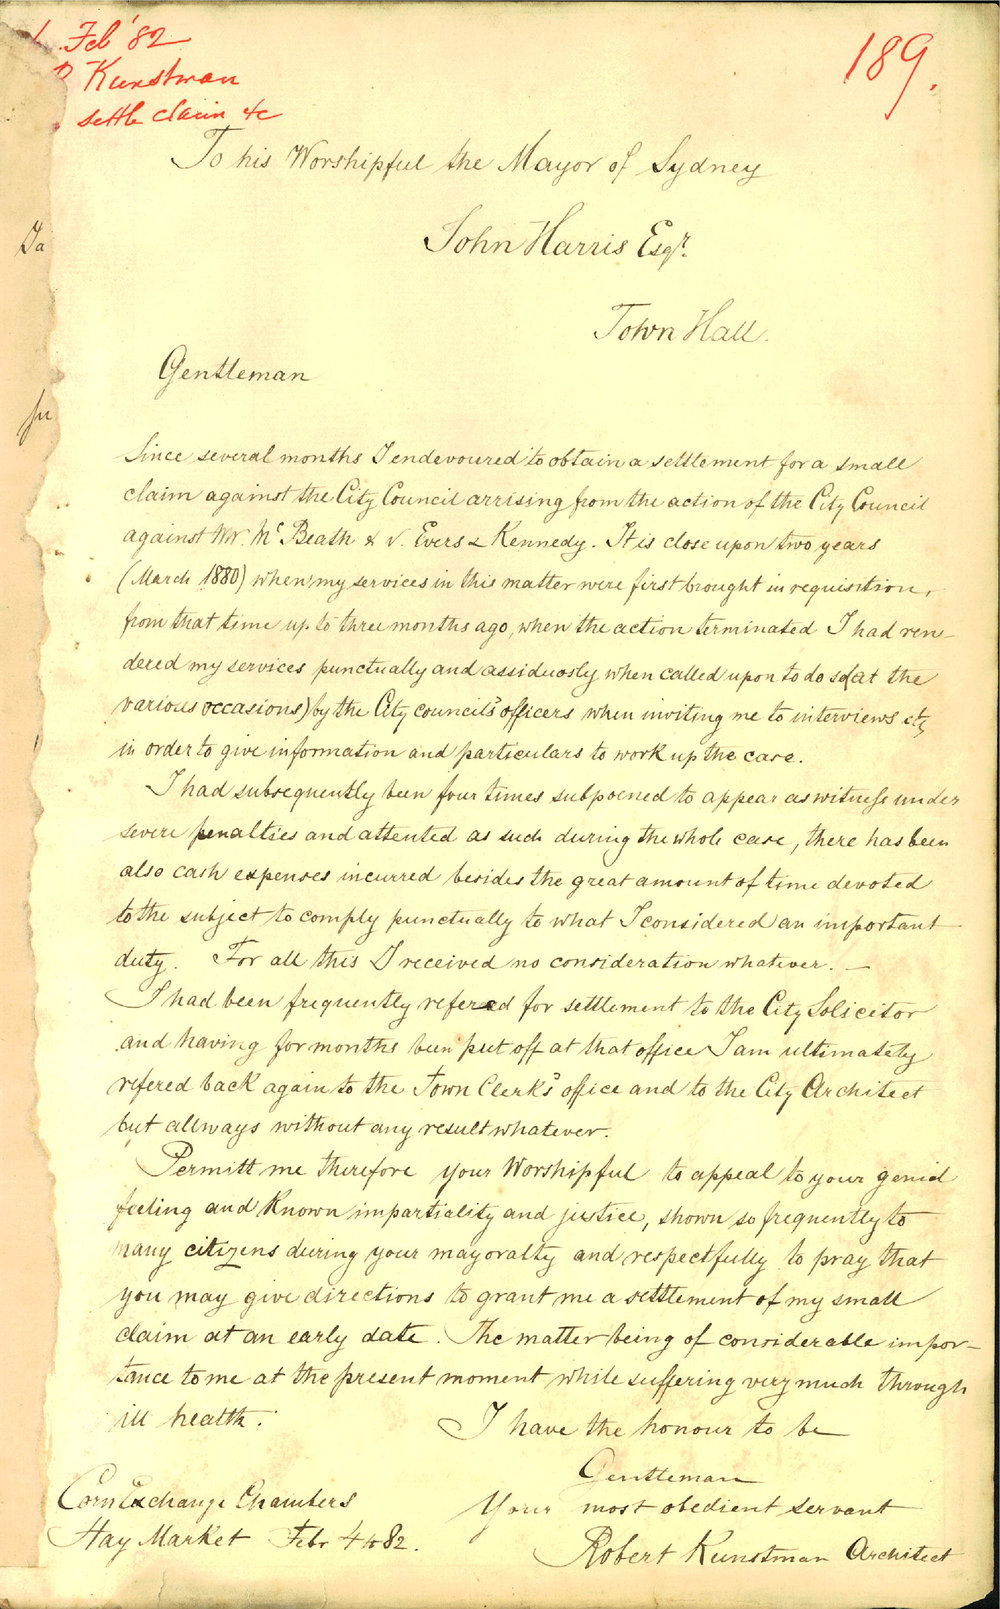 Feb '82
Kunstman
settle claim &c
189.
To his Worshipful the Mayor of Sydney
John Harris Esqr.
Town Hall.
Gentleman
Since several months I endevoured to obtain a settlement for a small
claim against the City Council arrising from the action of the City Council
against Wr. Mc Beath & V. Evers & Kennedy. It is close upon two years
(March 1880) when my services in this matter were first brought in requisition,
from that time up to three months ago, when the action terminated I had ren-
dered my services punctually and assiduosly when called upon to do so (at the
various occasions) by the City council's officers when inviting me to interviews etc
in order to give information and particulars to work up the case.
I had subsequently been four times subpoened to appear as witness under
severe penalties and attented as such during the whole case, there has been
also cash expenses incurred besides the great amount of time devoted
to the subject to comply punctually to what I considered an important
duty. For all this I received no consideration whatever. —
I had been frequently refered for settlement to the City Solicitor
and having for months been put off at that office I am ultimately
refered back again to the Town Clerk's office and to the City Architect
but allways without any result whatever.
Permitt me therefore your Worshipful to appeal to your genial
feeling and known impartiality and justice, shown so frequently to
many citizens during your mayoralty and respectfully to pray that
you may give directions to grant me a settlement of my small
claim at an early date. The matter being of considerable impor-
tance to me at the present moment while suffering very much through
ill health.
I have the honour to be
Gentleman
Your most obedient servant
Robert Kunstman Architect
Corn Exchange Chambers
Hay Market Febr 4th 82.
Ta